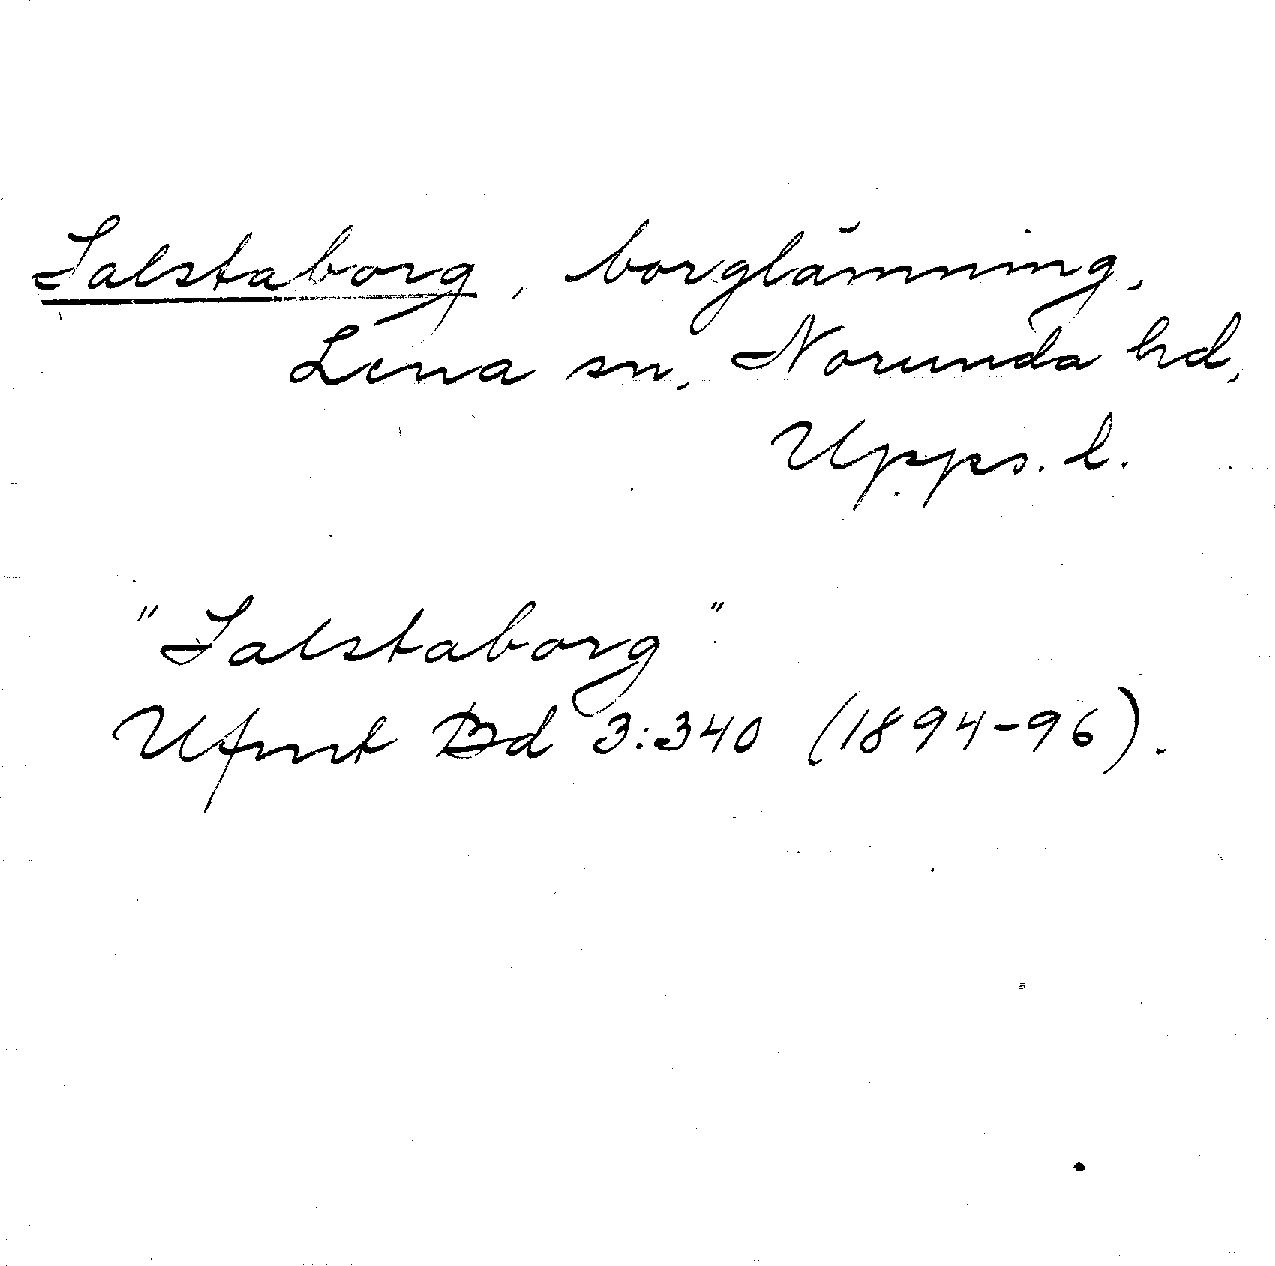 Salstaborg, borglämning,
Lena sn, Norunda hd,
Upps. l.
"Salstaborg"
Ufmt Bd 3:340 (1894-96).